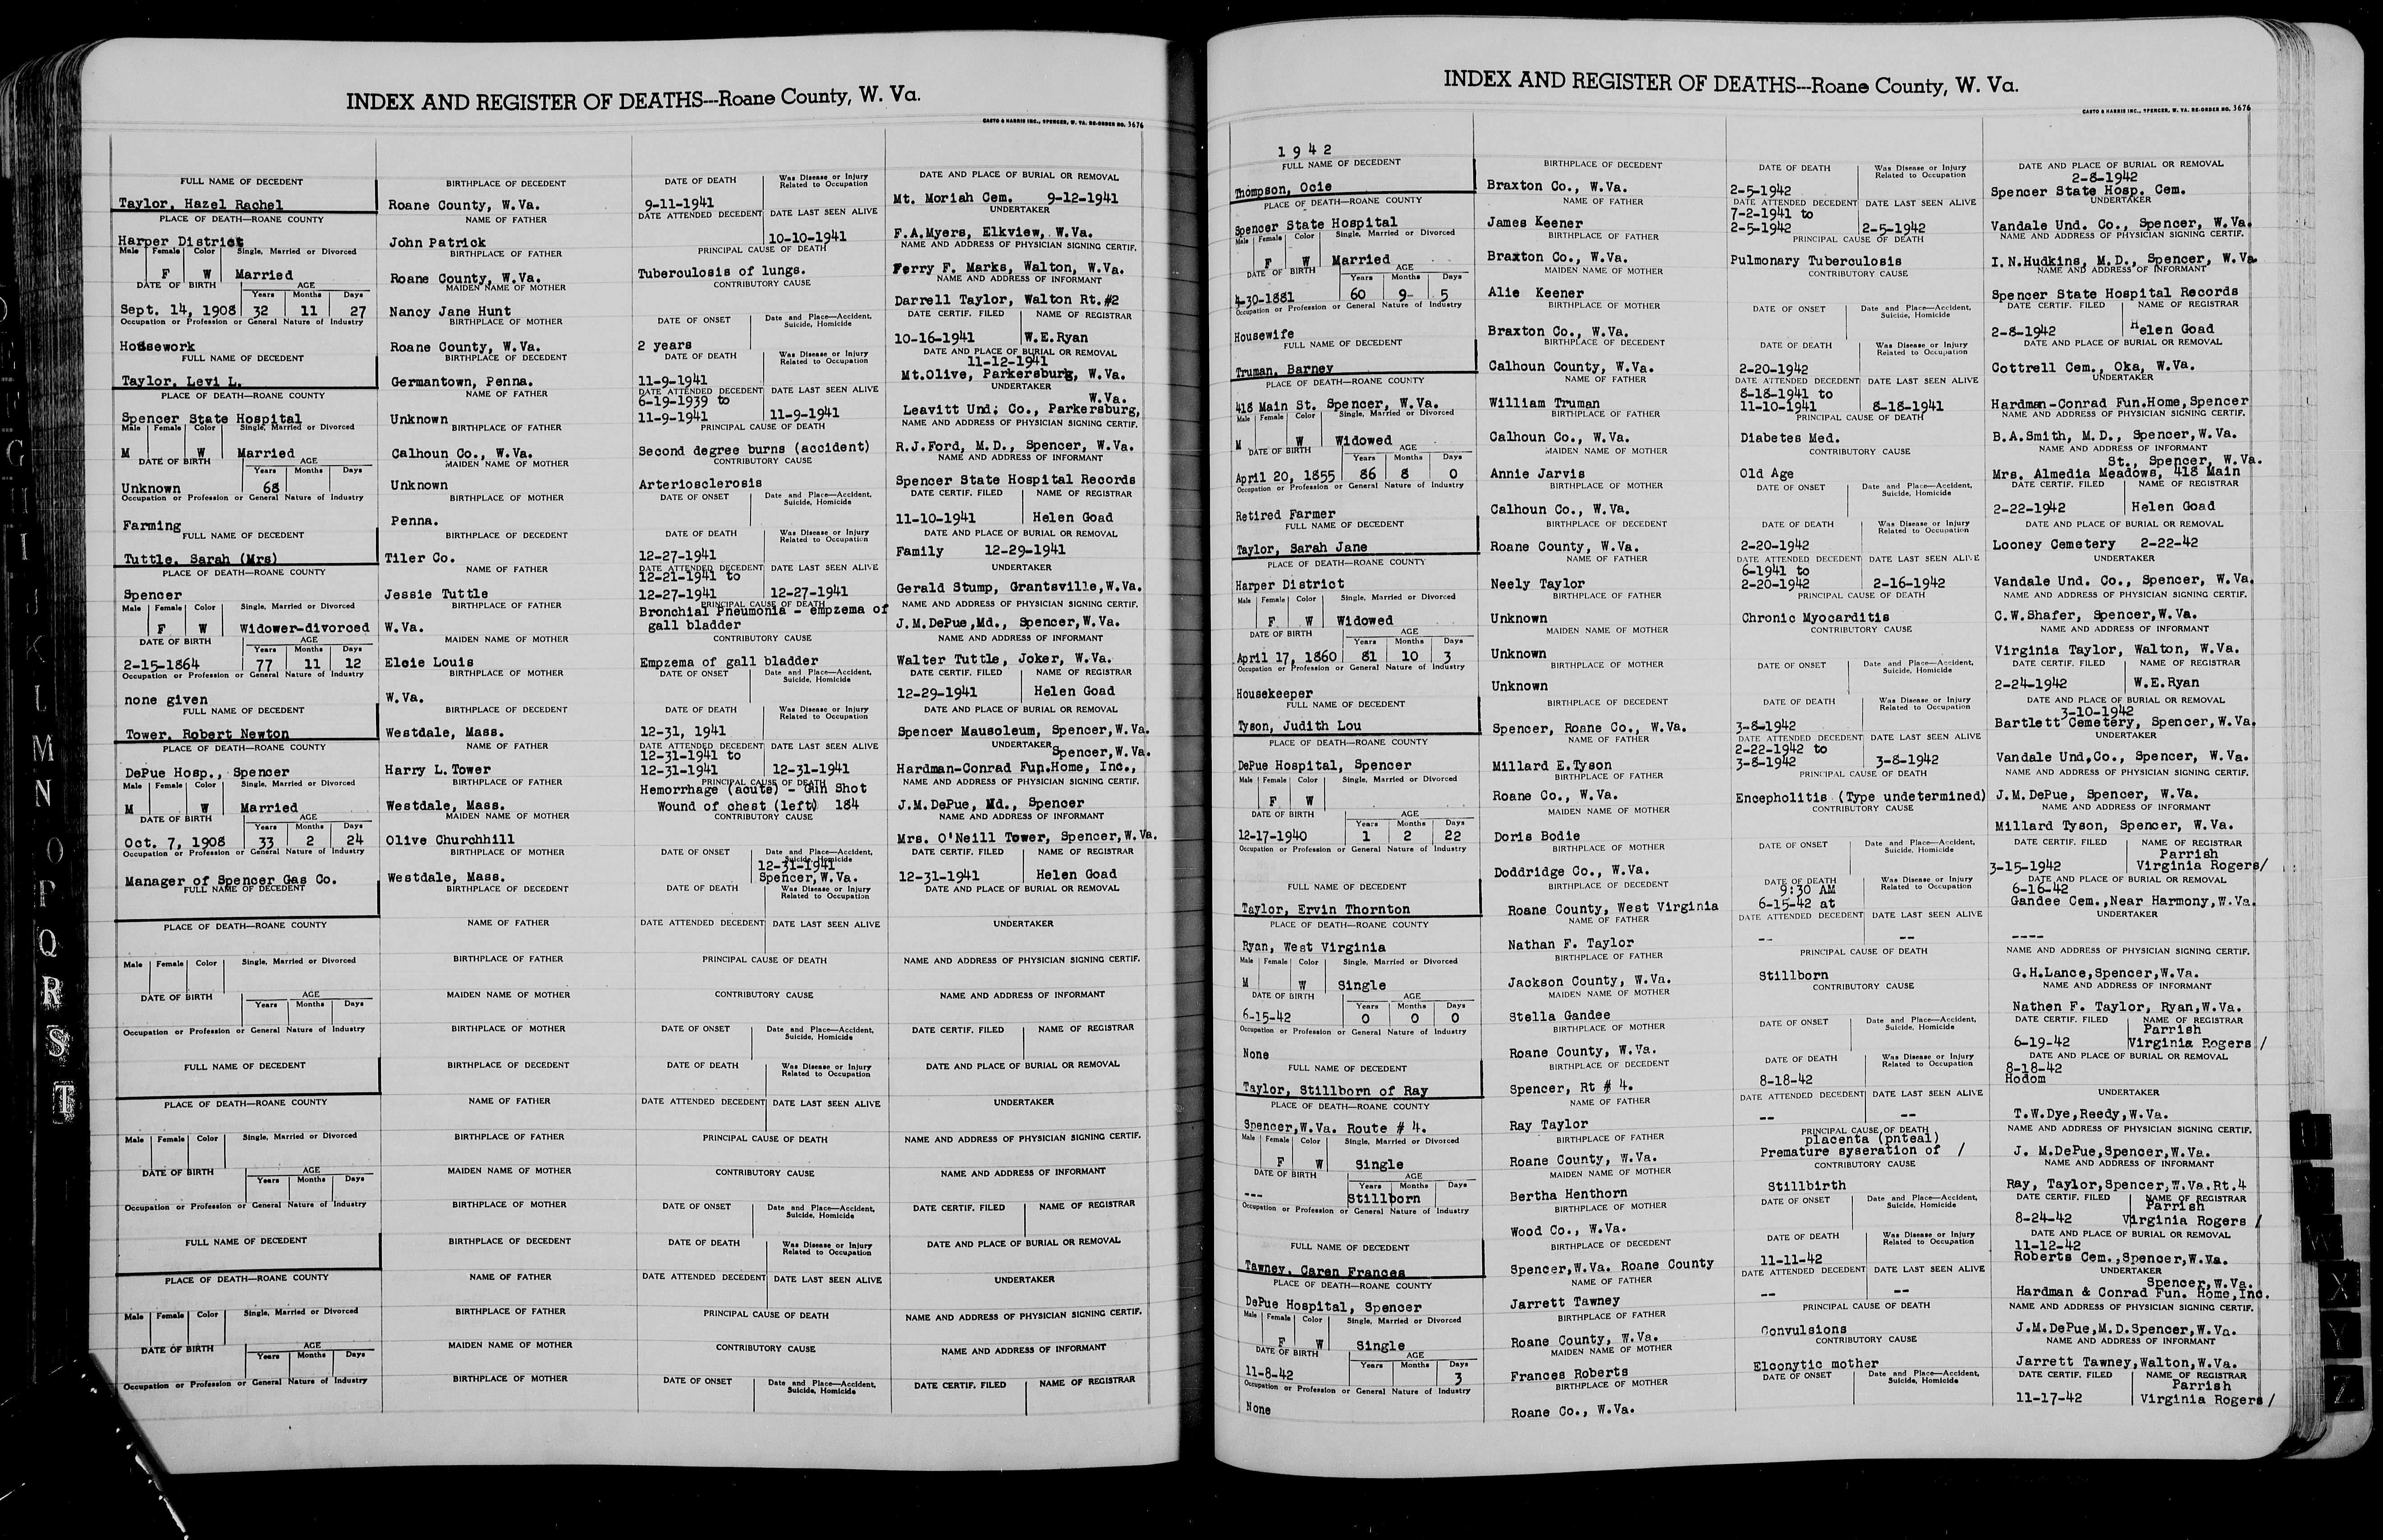 INDEX AND REGISTER OF DEATHS---Roane County, W. Va.
CASTO & HARRIS INC., SPENCER, W. VA. RE-ORDER NO. 3676
FULL NAME OF DECEDENT BIRTHPLACE OF DECEDENT DATE OF DEATH Was Disease or Injury Related to Occupation DATE AND PLACE OF BURIAL OR REMOVAL
Taylor, Hazel Rachel Roane County, W.Va. 9-11-1941 Mt. Moriah Cem. 9-12-1941
PLACE OF DEATH—ROANE COUNTY NAME OF FATHER DATE ATTENDED DECEDENT DATE LAST SEEN ALIVE UNDERTAKER
Harper District John Patrick 10-10-1941 F.A.Myers, Elkview, W.Va.
Male Female Color Single, Married or Divorced BIRTHPLACE OF FATHER PRINCIPAL CAUSE OF DEATH NAME AND ADDRESS OF PHYSICIAN SIGNING CERTIF.
F W Married Roane County, W.Va. Tuberculosis of lungs. Ferry F. Marks, Walton, W.Va.
DATE OF BIRTH AGE Years Months Days MAIDEN NAME OF MOTHER CONTRIBUTORY CAUSE NAME AND ADDRESS OF INFORMANT
Sept. 14, 1908 32 11 27 Nancy Jane Hunt Darrell Taylor, Walton Rt.#2
Occupation or Profession or General Nature of Industry BIRTHPLACE OF MOTHER DATE OF ONSET Date and Place—Accident, Suicide, Homicide DATE CERTIF. FILED NAME OF REGISTRAR
Housework Roane County, W.Va. 2 years 10-16-1941 W.E.Ryan
FULL NAME OF DECEDENT BIRTHPLACE OF DECEDENT DATE OF DEATH Was Disease or Injury Related to Occupation DATE AND PLACE OF BURIAL OR REMOVAL
11-12-1941
Taylor, Levi L. Germantown, Penna. 11-9-1941 Mt.Olive, Parkersburg, W.Va.
PLACE OF DEATH—ROANE COUNTY NAME OF FATHER DATE ATTENDED DECEDENT DATE LAST SEEN ALIVE UNDERTAKER
6-19-1939 to W.Va.
Spencer State Hospital Unknown 11-9-1941 11-9-1941 Leavitt Und. Co., Parkersburg,
Male Female Color Single, Married or Divorced BIRTHPLACE OF FATHER PRINCIPAL CAUSE OF DEATH NAME AND ADDRESS OF PHYSICIAN SIGNING CERTIF.
M W Married Calhoun Co., W.Va. Second degree burns (accident) R.J.Ford, M.D., Spencer, W.Va.
DATE OF BIRTH AGE Years Months Days MAIDEN NAME OF MOTHER CONTRIBUTORY CAUSE NAME AND ADDRESS OF INFORMANT
Unknown 68 Unknown Arteriosclerosis Spencer State Hospital Records
Occupation or Profession or General Nature of Industry BIRTHPLACE OF MOTHER DATE OF ONSET Date and Place—Accident, Suicide, Homicide DATE CERTIF. FILED NAME OF REGISTRAR
Farming Penna. 11-10-1941 Helen Goad
FULL NAME OF DECEDENT BIRTHPLACE OF DECEDENT DATE OF DEATH Was Disease or Injury Related to Occupation DATE AND PLACE OF BURIAL OR REMOVAL
Tuttle, Sarah (Mrs) Tiler Co. 12-27-1941 Family 12-29-1941
PLACE OF DEATH—ROANE COUNTY NAME OF FATHER DATE ATTENDED DECEDENT DATE LAST SEEN ALIVE UNDERTAKER
12-21-1941 to
Spencer Jessie Tuttle 12-27-1941 12-27-1941 Gerald Stump, Grantsville,W.Va.
Male Female Color Single, Married or Divorced BIRTHPLACE OF FATHER PRINCIPAL CAUSE OF DEATH NAME AND ADDRESS OF PHYSICIAN SIGNING CERTIF.
Bronchial Pneumonia - empzema of
F W Widower-divorced W.Va. gall bladder J.M.DePue,Md., Spencer,W.Va.
DATE OF BIRTH AGE Years Months Days MAIDEN NAME OF MOTHER CONTRIBUTORY CAUSE NAME AND ADDRESS OF INFORMANT
2-15-1864 77 11 12 Elcie Louis Empzema of gall bladder Walter Tuttle, Joker, W.Va.
Occupation or Profession or General Nature of Industry BIRTHPLACE OF MOTHER DATE OF ONSET Date and Place—Accident, Suicide, Homicide DATE CERTIF. FILED NAME OF REGISTRAR
none given W.Va. 12-29-1941 Helen Goad
FULL NAME OF DECEDENT BIRTHPLACE OF DECEDENT DATE OF DEATH Was Disease or Injury Related to Occupation DATE AND PLACE OF BURIAL OR REMOVAL
Tower, Robert Newton Westdale, Mass. 12-31, 1941 Spencer Mausoleum, Spencer,W.Va.
PLACE OF DEATH—ROANE COUNTY NAME OF FATHER DATE ATTENDED DECEDENT DATE LAST SEEN ALIVE UNDERTAKER
12-31-1941 to Spencer,W.Va.
DePue Hosp., Spencer Harry L.Tower 12-31-1941 12-31-1941 Hardman-Conrad Fun.Home, Inc.,
Male Female Color Single, Married or Divorced BIRTHPLACE OF FATHER PRINCIPAL CAUSE OF DEATH NAME AND ADDRESS OF PHYSICIAN SIGNING CERTIF.
Hemorrhage (acute) - Gun Shot
M W Married Westdale, Mass. Wound of chest (left) 184 J.M.DePue, Md., Spencer
DATE OF BIRTH AGE Years Months Days MAIDEN NAME OF MOTHER CONTRIBUTORY CAUSE NAME AND ADDRESS OF INFORMANT
Oct. 7, 1908 33 2 24 Olive Churchhill Mrs. O'Neill Tower, Spencer,W.Va.
Occupation or Profession or General Nature of Industry BIRTHPLACE OF MOTHER DATE OF ONSET Date and Place—Accident, Suicide, Homicide DATE CERTIF. FILED NAME OF REGISTRAR
12-31-1941
Manager of Spencer Gas Co. Westdale, Mass. Spencer,W.Va. 12-31-1941 Helen Goad
FULL NAME OF DECEDENT BIRTHPLACE OF DECEDENT DATE OF DEATH Was Disease or Injury Related to Occupation DATE AND PLACE OF BURIAL OR REMOVAL
PLACE OF DEATH—ROANE COUNTY NAME OF FATHER DATE ATTENDED DECEDENT DATE LAST SEEN ALIVE UNDERTAKER
Male Female Color Single, Married or Divorced BIRTHPLACE OF FATHER PRINCIPAL CAUSE OF DEATH NAME AND ADDRESS OF PHYSICIAN SIGNING CERTIF.
DATE OF BIRTH AGE Years Months Days MAIDEN NAME OF MOTHER CONTRIBUTORY CAUSE NAME AND ADDRESS OF INFORMANT
Occupation or Profession or General Nature of Industry BIRTHPLACE OF MOTHER DATE OF ONSET Date and Place—Accident, Suicide, Homicide DATE CERTIF. FILED NAME OF REGISTRAR
FULL NAME OF DECEDENT BIRTHPLACE OF DECEDENT DATE OF DEATH Was Disease or Injury Related to Occupation DATE AND PLACE OF BURIAL OR REMOVAL
PLACE OF DEATH—ROANE COUNTY NAME OF FATHER DATE ATTENDED DECEDENT DATE LAST SEEN ALIVE UNDERTAKER
Male Female Color Single, Married or Divorced BIRTHPLACE OF FATHER PRINCIPAL CAUSE OF DEATH NAME AND ADDRESS OF PHYSICIAN SIGNING CERTIF.
DATE OF BIRTH AGE Years Months Days MAIDEN NAME OF MOTHER CONTRIBUTORY CAUSE NAME AND ADDRESS OF INFORMANT
Occupation or Profession or General Nature of Industry BIRTHPLACE OF MOTHER DATE OF ONSET Date and Place—Accident, Suicide, Homicide DATE CERTIF. FILED NAME OF REGISTRAR
FULL NAME OF DECEDENT BIRTHPLACE OF DECEDENT DATE OF DEATH Was Disease or Injury Related to Occupation DATE AND PLACE OF BURIAL OR REMOVAL
PLACE OF DEATH—ROANE COUNTY NAME OF FATHER DATE ATTENDED DECEDENT DATE LAST SEEN ALIVE UNDERTAKER
Male Female Color Single, Married or Divorced BIRTHPLACE OF FATHER PRINCIPAL CAUSE OF DEATH NAME AND ADDRESS OF PHYSICIAN SIGNING CERTIF.
DATE OF BIRTH AGE Years Months Days MAIDEN NAME OF MOTHER CONTRIBUTORY CAUSE NAME AND ADDRESS OF INFORMANT
Occupation or Profession or General Nature of Industry BIRTHPLACE OF MOTHER DATE OF ONSET Date and Place—Accident, Suicide, Homicide DATE CERTIF. FILED NAME OF REGISTRAR
G
H
I
J
K
L
M
N
O
P
Q
R
S
T
INDEX AND REGISTER OF DEATHS---Roane County, W. Va.
CASTO & HARRIS INC., SPENCER, W. VA. RE-ORDER NO. 3676
1942
FULL NAME OF DECEDENT BIRTHPLACE OF DECEDENT DATE OF DEATH Was Disease or Injury Related to Occupation DATE AND PLACE OF BURIAL OR REMOVAL
2-8-1942
Thompson, Ocie Braxton Co., W.Va. 2-5-1942 Spencer State Hosp. Cem.
PLACE OF DEATH—ROANE COUNTY NAME OF FATHER DATE ATTENDED DECEDENT DATE LAST SEEN ALIVE UNDERTAKER
7-2-1941 to
Spencer State Hospital James Keener 2-5-1942 2-5-1942 Vandale Und. Co., Spencer, W.Va.
Male Female Color Single, Married or Divorced BIRTHPLACE OF FATHER PRINCIPAL CAUSE OF DEATH NAME AND ADDRESS OF PHYSICIAN SIGNING CERTIF.
F W Married Braxton Co., W.Va. Pulmonary Tuberculosis I.N.Hudkins, M.D., Spencer, W.Va.
DATE OF BIRTH AGE Years Months Days MAIDEN NAME OF MOTHER CONTRIBUTORY CAUSE NAME AND ADDRESS OF INFORMANT
4-30-1881 60 9- 5 Alie Keener Spencer State Hospital Records
Occupation or Profession or General Nature of Industry BIRTHPLACE OF MOTHER DATE OF ONSET Date and Place—Accident, Suicide, Homicide DATE CERTIF. FILED NAME OF REGISTRAR
Housewife Braxton Co., W.Va. 2-8-1942 Helen Goad
FULL NAME OF DECEDENT BIRTHPLACE OF DECEDENT DATE OF DEATH Was Disease or Injury Related to Occupation DATE AND PLACE OF BURIAL OR REMOVAL
Truman, Barney Calhoun County, W.Va. 2-20-1942 Cottrell Cem., Oka, W.Va.
PLACE OF DEATH—ROANE COUNTY NAME OF FATHER DATE ATTENDED DECEDENT DATE LAST SEEN ALIVE UNDERTAKER
8-18-1941 to
418 Main St. Spencer, W.Va. William Truman 11-10-1941 8-18-1941 Hardman-Conrad Fun.Home,Spencer
Male Female Color Single, Married or Divorced BIRTHPLACE OF FATHER PRINCIPAL CAUSE OF DEATH NAME AND ADDRESS OF PHYSICIAN SIGNING CERTIF.
M W Widowed Calhoun Co., W.Va. Diabetes Med. B.A.Smith, M.D., Spencer,W.Va.
DATE OF BIRTH AGE Years Months Days MAIDEN NAME OF MOTHER CONTRIBUTORY CAUSE NAME AND ADDRESS OF INFORMANT
St., Spencer, W.Va.
April 20, 1855 86 8 0 Annie Jarvis Old Age Mrs. Almedia Meadows, 418 Main
Occupation or Profession or General Nature of Industry BIRTHPLACE OF MOTHER DATE OF ONSET Date and Place—Accident, Suicide, Homicide DATE CERTIF. FILED NAME OF REGISTRAR
Retired Farmer Calhoun Co., W.Va. 2-22-1942 Helen Goad
FULL NAME OF DECEDENT BIRTHPLACE OF DECEDENT DATE OF DEATH Was Disease or Injury Related to Occupation DATE AND PLACE OF BURIAL OR REMOVAL
Taylor, Sarah Jane Roane County, W.Va. 2-20-1942 Looney Cemetery 2-22-42
PLACE OF DEATH—ROANE COUNTY NAME OF FATHER DATE ATTENDED DECEDENT DATE LAST SEEN ALIVE UNDERTAKER
6-1941 to
Harper District Neely Taylor 2-20-1942 2-16-1942 Vandale Und. Co., Spencer, W.Va.
Male Female Color Single, Married or Divorced BIRTHPLACE OF FATHER PRINCIPAL CAUSE OF DEATH NAME AND ADDRESS OF PHYSICIAN SIGNING CERTIF.
F W Widowed Unknown Chronic Myocarditis C.W.Shafer, Spencer,W.Va.
DATE OF BIRTH AGE Years Months Days MAIDEN NAME OF MOTHER CONTRIBUTORY CAUSE NAME AND ADDRESS OF INFORMANT
April 17, 1860 81 10 3 Unknown Virginia Taylor, Walton, W.Va.
Occupation or Profession or General Nature of Industry BIRTHPLACE OF MOTHER DATE OF ONSET Date and Place—Accident, Suicide, Homicide DATE CERTIF. FILED NAME OF REGISTRAR
Housekeeper Unknown 2-24-1942 W.E.Ryan
FULL NAME OF DECEDENT BIRTHPLACE OF DECEDENT DATE OF DEATH Was Disease or Injury Related to Occupation DATE AND PLACE OF BURIAL OR REMOVAL
3-10-1942
Tyson, Judith Lou Spencer, Roane Co., W.Va. 3-8-1942 Bartlett Cemetery, Spencer,W.Va.
PLACE OF DEATH—ROANE COUNTY NAME OF FATHER DATE ATTENDED DECEDENT DATE LAST SEEN ALIVE UNDERTAKER
2-22-1942 to
DePue Hospital, Spencer Millard E.Tyson 3-8-1942 3-8-1942 Vandale Und,Co., Spencer, W.Va.
Male Female Color Single, Married or Divorced BIRTHPLACE OF FATHER PRINCIPAL CAUSE OF DEATH NAME AND ADDRESS OF PHYSICIAN SIGNING CERTIF.
F W Roane Co., W.Va. Encepholitis (Type undetermined) J.M.DePue, Spencer, W.Va.
DATE OF BIRTH AGE Years Months Days MAIDEN NAME OF MOTHER CONTRIBUTORY CAUSE NAME AND ADDRESS OF INFORMANT
12-17-1940 1 2 22 Doris Bodie Millard Tyson, Spencer, W.Va.
Occupation or Profession or General Nature of Industry BIRTHPLACE OF MOTHER DATE OF ONSET Date and Place—Accident, Suicide, Homicide DATE CERTIF. FILED NAME OF REGISTRAR
Parrish
Doddridge Co., W.Va. 3-15-1942 Virginia Rogers/
FULL NAME OF DECEDENT BIRTHPLACE OF DECEDENT DATE OF DEATH Was Disease or Injury Related to Occupation DATE AND PLACE OF BURIAL OR REMOVAL
9:30 AM 6-16-42
Taylor, Ervin Thornton Roane County, West Virginia 6-15-42 at Gandee Cem.,Near Harmony,W.Va.
PLACE OF DEATH—ROANE COUNTY NAME OF FATHER DATE ATTENDED DECEDENT DATE LAST SEEN ALIVE UNDERTAKER
Ryan, West Virginia Nathan F. Taylor -- -- ----
Male Female Color Single, Married or Divorced BIRTHPLACE OF FATHER PRINCIPAL CAUSE OF DEATH NAME AND ADDRESS OF PHYSICIAN SIGNING CERTIF.
M W Single Jackson County, W.Va. Stillborn G.H.Lance,Spencer,W.Va.
DATE OF BIRTH AGE Years Months Days MAIDEN NAME OF MOTHER CONTRIBUTORY CAUSE NAME AND ADDRESS OF INFORMANT
6-15-42 0 0 0 Stella Gandee Nathen F. Taylor, Ryan,W.Va.
Occupation or Profession or General Nature of Industry BIRTHPLACE OF MOTHER DATE OF ONSET Date and Place—Accident, Suicide, Homicide DATE CERTIF. FILED NAME OF REGISTRAR
Parrish
None Roane County, W.Va. 6-19-42 Virginia Rogers /
FULL NAME OF DECEDENT BIRTHPLACE OF DECEDENT DATE OF DEATH Was Disease or Injury Related to Occupation DATE AND PLACE OF BURIAL OR REMOVAL
8-18-42
Taylor, Stillborn of Ray Spencer, Rt # 4. 8-18-42 Hodom
PLACE OF DEATH—ROANE COUNTY NAME OF FATHER DATE ATTENDED DECEDENT DATE LAST SEEN ALIVE UNDERTAKER
Spencer,W.Va. Route # 4. Ray Taylor -- -- T.W.Dye,Reedy,W.Va.
Male Female Color Single, Married or Divorced BIRTHPLACE OF FATHER PRINCIPAL CAUSE OF DEATH NAME AND ADDRESS OF PHYSICIAN SIGNING CERTIF.
placenta (pnteal)
F W Single Roane County, W.Va. Premature syseration of / J. M.DePue,Spencer,W.Va.
DATE OF BIRTH AGE Years Months Days MAIDEN NAME OF MOTHER CONTRIBUTORY CAUSE NAME AND ADDRESS OF INFORMANT
--- Stillborn Bertha Henthorn Stillbirth Ray, Taylor,Spencer,W.Va.Rt.4
Occupation or Profession or General Nature of Industry BIRTHPLACE OF MOTHER DATE OF ONSET Date and Place—Accident, Suicide, Homicide DATE CERTIF. FILED NAME OF REGISTRAR
Parrish
Wood Co., W.Va. 8-24-42 Virginia Rogers /
FULL NAME OF DECEDENT BIRTHPLACE OF DECEDENT DATE OF DEATH Was Disease or Injury Related to Occupation DATE AND PLACE OF BURIAL OR REMOVAL
11-12-42
Tawney, Caren Frances Spencer,W.Va. Roane County 11-11-42 Roberts Cem.,Spencer,W.Va.
PLACE OF DEATH—ROANE COUNTY NAME OF FATHER DATE ATTENDED DECEDENT DATE LAST SEEN ALIVE UNDERTAKER
Spencer,W.Va.
DePue Hospital, Spencer Jarrett Tawney -- -- Hardman & Conrad Fun. Home,Inc.
Male Female Color Single, Married or Divorced BIRTHPLACE OF FATHER PRINCIPAL CAUSE OF DEATH NAME AND ADDRESS OF PHYSICIAN SIGNING CERTIF.
F W Single Roane County, W.Va. Convulsions J.M.DePue,M.D.Spencer,W.Va.
DATE OF BIRTH AGE Years Months Days MAIDEN NAME OF MOTHER CONTRIBUTORY CAUSE NAME AND ADDRESS OF INFORMANT
11-8-42 3 Frances Roberts Elconytic mother Jarrett Tawney,Walton,W.Va.
Occupation or Profession or General Nature of Industry BIRTHPLACE OF MOTHER DATE OF ONSET Date and Place—Accident, Suicide, Homicide DATE CERTIF. FILED NAME OF REGISTRAR
Parrish
None Roane Co., W.Va. 11-17-42 Virginia Rogers/
U
W
X
Y
Z